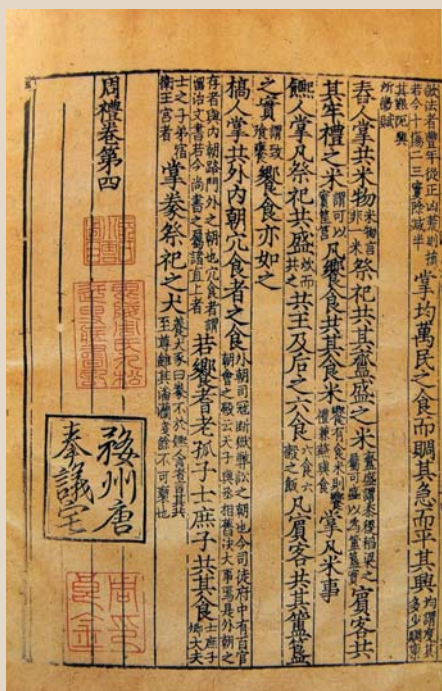 斂法者豐年從正凶荒則損若今十傷二三實除減半掌均萬民之食而賙其急而平其興均謂度其多少賙稟
其艱阨興所徵賦
舂人掌共米物米物言非一米祭祀共其齍盛之米齍盛謂黍稷稻粱之屬可盛以為簠簋實賓客共
其牢禮之米謂可以實筐筥凡饗食共其食米饗有食米則饗禮兼燕與食掌凡米事
饎人掌凡祭祀共盛炊而共之共王及后之六食六食六穀之飯凡賓客共其簠簋
之實謂致飧饔饗食亦如之
槁人掌共外內朝宂食者之食外朝司寇斷獄弊訟之朝也今司徒府中有百官朝會之殿云天子與丞相舊決大事焉是外朝之
存者與內朝路門外之朝也宂食者謂留治文書若今尚書之屬諸直上者若饗耆老孤子士庶子共其食士庶子卿大夫
士之子弟宿衛王宮者掌豢祭祀之犬養犬豕曰豢不於饎人言其共至尊雖其潘瀾戔餘不可褻也
周禮卷第四
婺州唐
奉議宅
周氏
良金